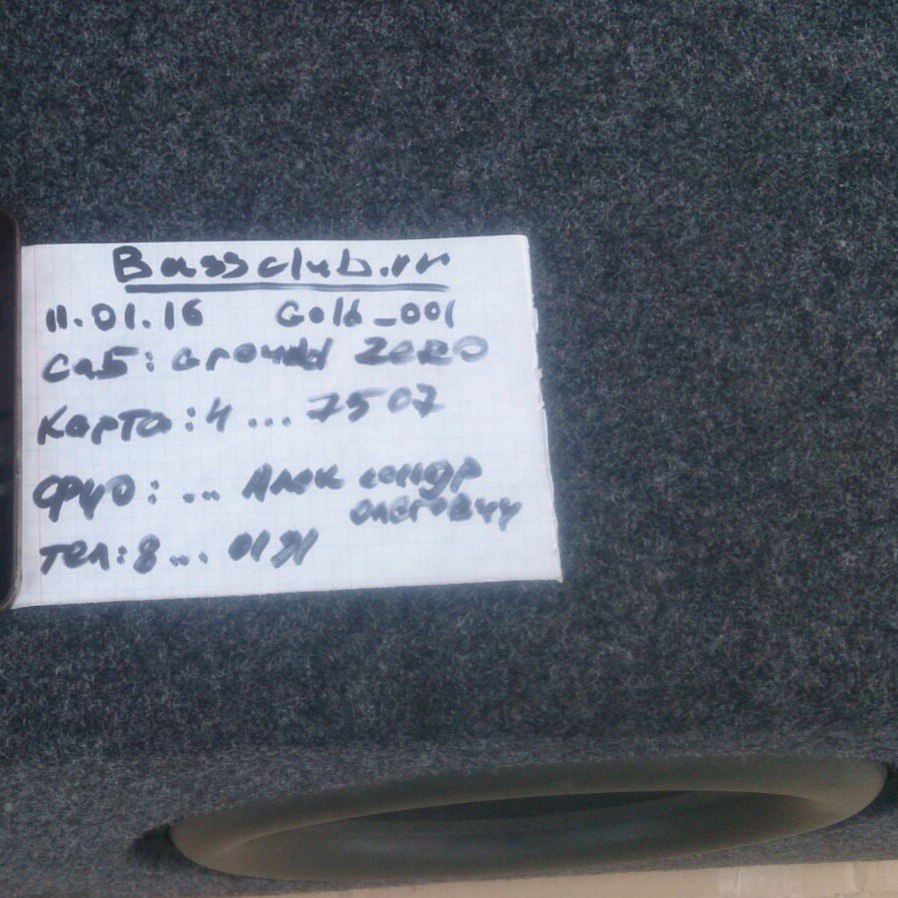 Bassclub.ru
11.01.16 Gold_001
Саб: Ground ZERO
Карта: 4 ... 7507
ФИО: ... Александр
Олегович
Тел: 8 ...